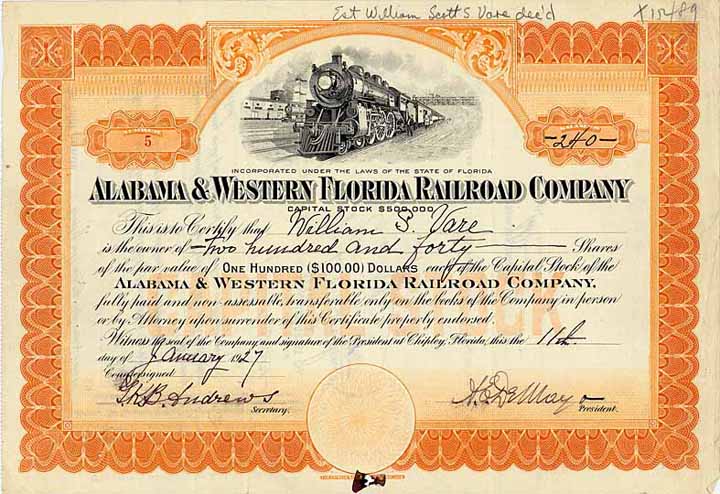 Est William Scott S Vare dec'd
X 15489
5
-240-
INCORPORATED UNDER THE LAWS OF THE STATE OF FLORIDA
ALABAMA & WESTERN FLORIDA RAILROAD COMPANY
CAPITAL STOCK $500,000
This is to Certify that William S. Vare
is the owner of Two hundred and forty Shares
of the par value of ONE HUNDRED ($100.00) DOLLARS each of the Capital Stock of the
ALABAMA & WESTERN FLORIDA RAILROAD COMPANY,
fully paid and non-assessable, transferable only on the books of the Company in person
or by Attorney upon surrender of this Certificate properly endorsed.
Witness the seal of the Company and signature of the President at Chipley, Florida, this the 11th
day of January 1927
Countersigned
Andrews
Secretary.
A. E. DeMayo
President.